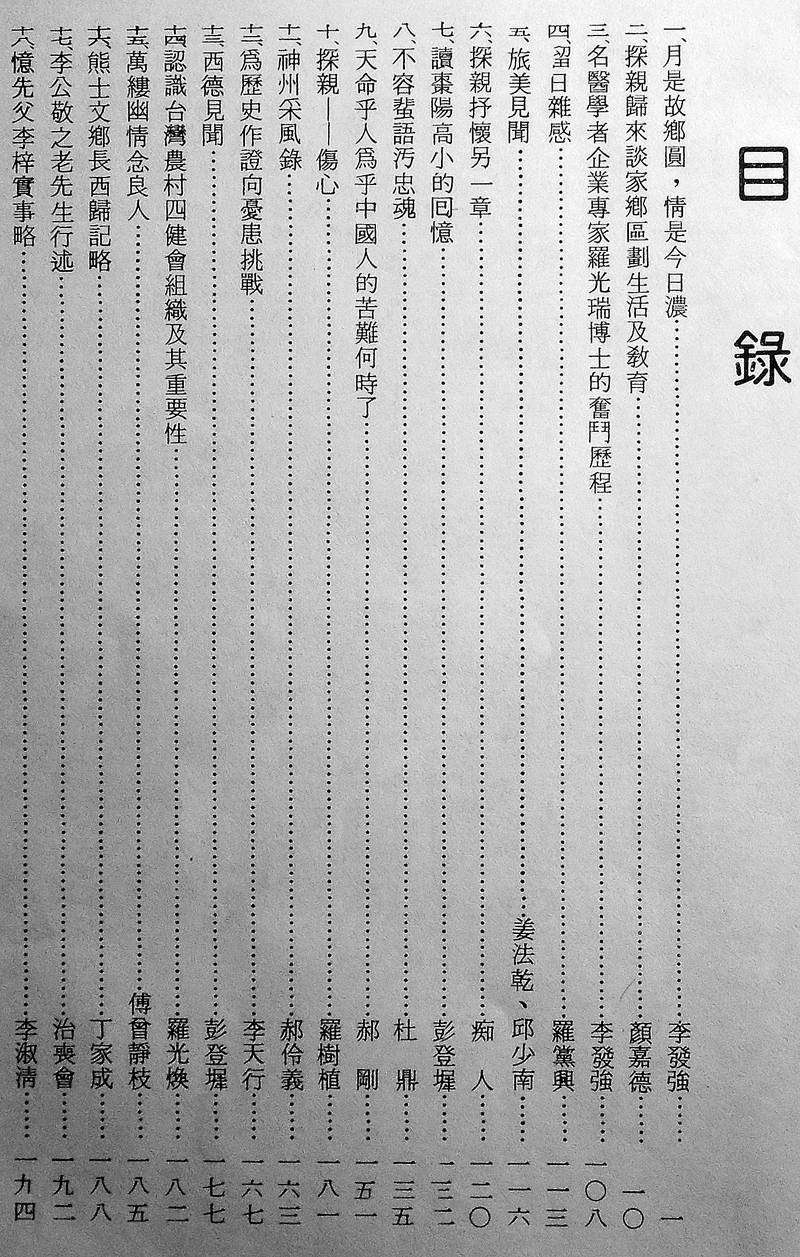 目錄
一、月是故鄉圓，情是今日濃……李發強……一
二、探親歸來談家鄉區劃生活及教育……顏嘉德……一〇
三、名醫學者企業專家羅光瑞博士的奮鬥歷程……李發強……一〇八
四、留日雜感……羅黨興……一一三
五、旅美見聞……姜法乾、邱少南……一一六
六、探親抒懷另一章……痴人……一二〇
七、讀棗陽高小的回憶……彭登墀……一三二
八、不容蜚語汚忠魂……杜鼎……一三五
九、天命乎人爲乎中國人的苦難何時了……郝剛……一五一
十、探親——傷心……羅樹植……一八一
十一、神州采風錄……郝伶義……一六三
十二、爲歷史作證向憂患挑戰……李天行……一六七
十三、西德見聞……彭登墀……一七七
十四、認識台灣農村四健會組織及其重要性……羅光煥……一八二
十五、萬縷幽情念良人……傅曾靜枝……一八五
十六、熊士文鄉長西歸記略……丁家成……一八八
十七、李公敬之老先生行述……治喪會……一九二
十八、憶先父李梓實事略……李淑清……一九四